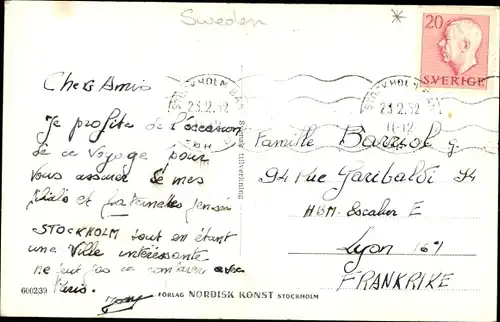 Sweden
*
20
SVERIGE
STOCKHOLM BAN
23.2.52
STOCKHOLM BAN
23.2.52
11-12
Chers Amis
Je profite de l'occasion
de ce voyage pour
vous assurer de mes
et fraternelles
STOCKHOLM tout en étant
une Ville intéressante
ne peut pas se comparer avec
Paris.
Svensk tillverkning
Famille Barrol g.
94 Rue Garibaldi 94
HBM. Escalier E
Lyon
FRANKRIKE
600239
FÖRLAG NORDISK KONST STOCKHOLM